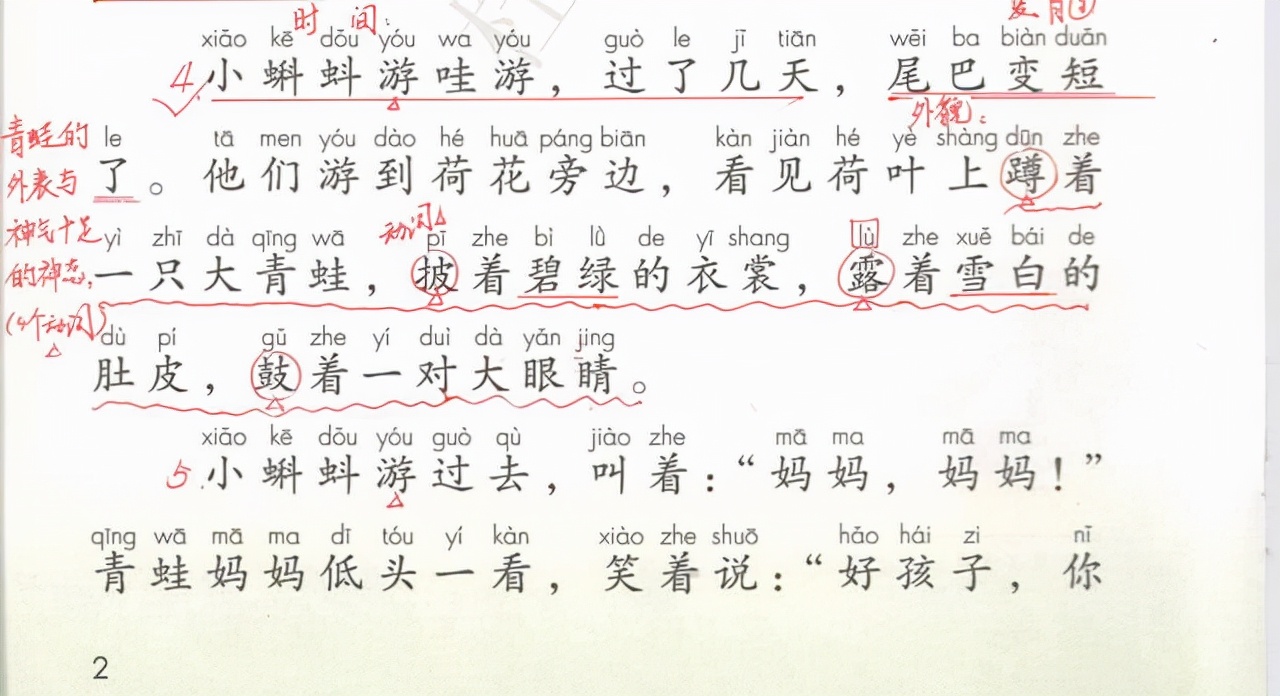 时间：
发育④
xiǎo kē dǒu yóu wa yóu guò le jǐ tiān wěi ba biàn duǎn
4.小蝌蚪游哇游，过了几天，尾巴变短
外观：
青蛙的外表与神气十足的神态，（4个动词）
le tā men yóu dào hé huā páng biān kàn jiàn hé yè shàng dūn zhe
了。他们游到荷花旁边，看见荷叶上蹲着
动词
yì zhī dà qīng wā pī zhe bì lǜ de yī shang lù zhe xuě bái de
一只大青蛙，披着碧绿的衣裳，露着雪白的
dù pí gǔ zhe yí duì dà yǎn jing
肚皮，鼓着一对大眼睛。
xiǎo kē dǒu yóu guò qù jiào zhe mā ma mā ma
5.小蝌蚪游过去，叫着：“妈妈，妈妈！”
qīng wā mā ma dī tóu yí kàn xiào zhe shuō hǎo hái zi nǐ
青蛙妈妈低头一看，笑着说：“好孩子，你
2